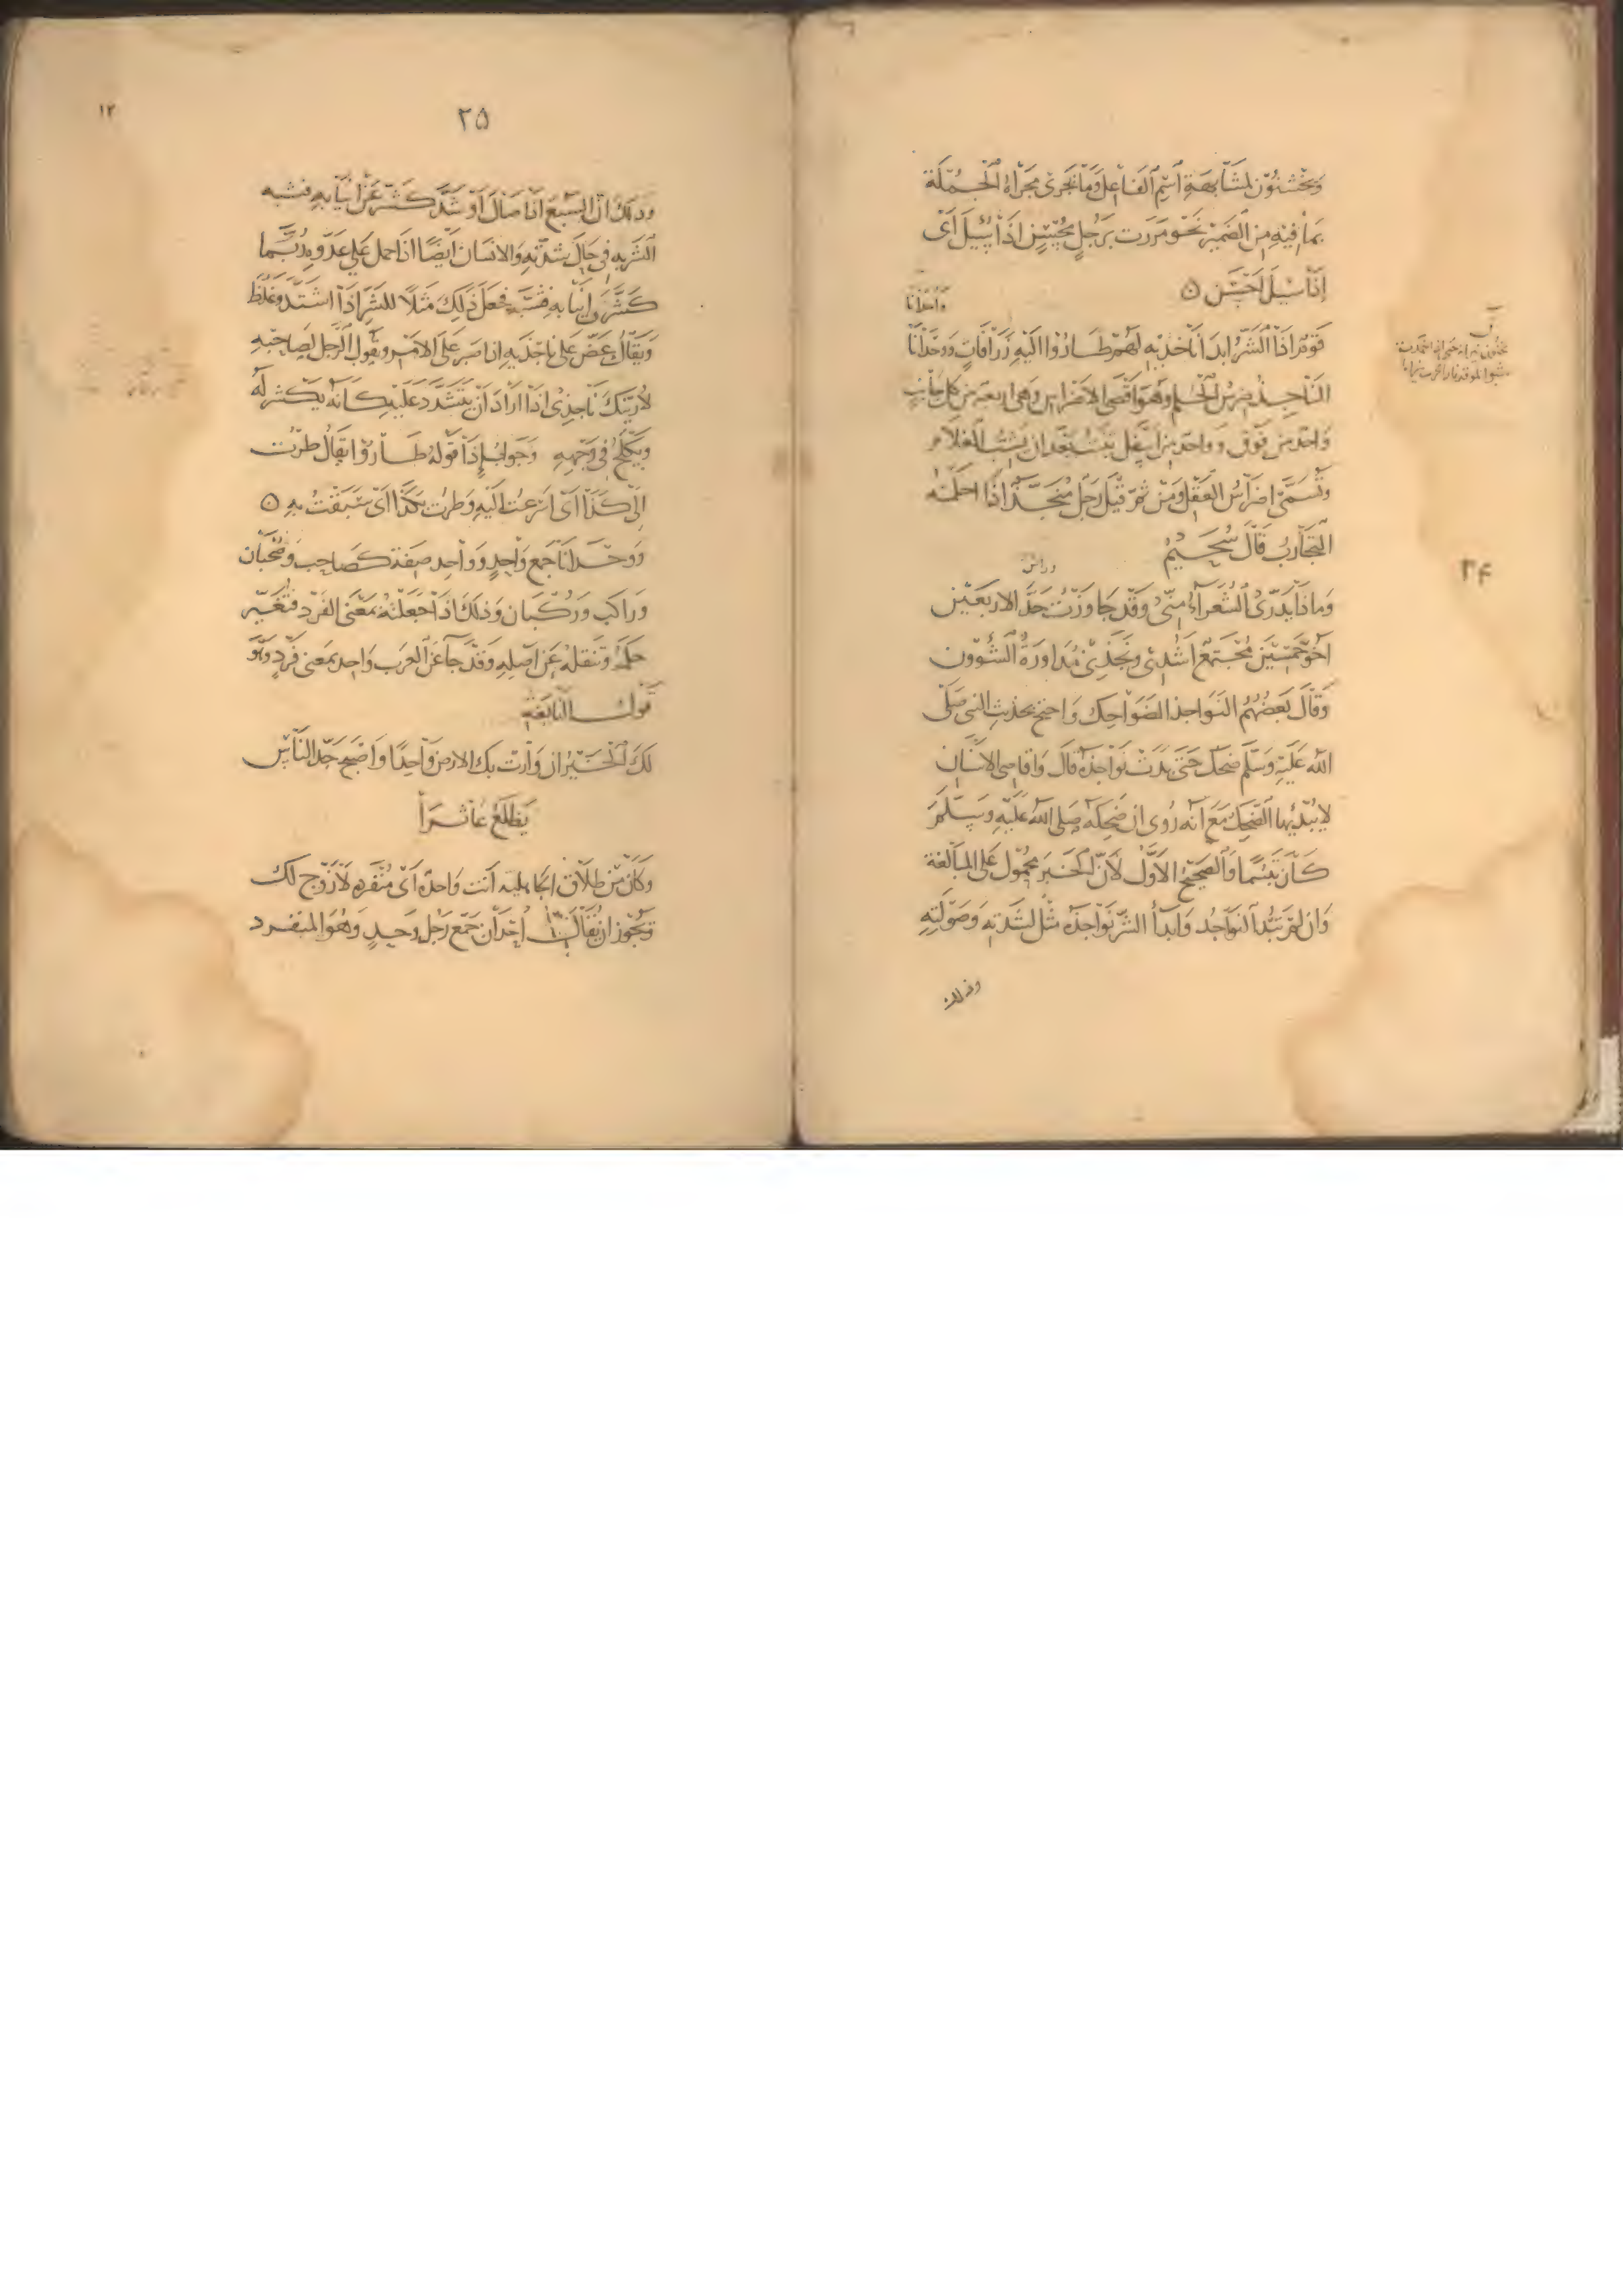 وخشنون لمشابهة اسم الفاعل وما جرى مجراه الجملة
بما فيه من الضمير نحو مررت برجل محسن اذا سئل اى
اذا سئل احسن ٥
واحدانا
قوم اذا الشر ابدا ناجذيه لهم طاروا اليه زرافات ووحدانا
الناجذ ضرس الحلم وهو اقصى الاضراس وهى اربعة من كل جانب
واحد من فوق وواحد من اسفل ينبت بعد ان يشب الغلام
وتسمى اضراس العقل ومن ثم قيل رجل منجذ اذا احكمته
التجارب قال سحيم
وماذا يدرى الشعراء منى وقد جاوزت حد الاربعين
اخو خمسين مجتمع اشدى ونجذنى مداورة الشؤون
وقال بعضهم النواجذ الضواحك واحتج بحديث النبى صلى
الله عليه وسلم ضحك حتى بدت نواجذه قال واقاصى الاسنان
لا يبديها الضحك مع انه روى ان ضحكه صلى الله عليه وسلم
كان تبسما والصحيح الاول لان الخبر محمول على المبالغة
وان لم تبد النواجذ وابدأ الشر نواجذه مثل لشدته وصولته
وذلك
٢٤
٢٥
١٢
وذلك ان السبع اذا صال او شد كشر عن انيابه فشبه
الشر به فى حال شدته والانسان ايضا اذا حمل على عدوه ربما
كشر عن انيابه فشبه فجعل ذلك مثلا للشر اذا اشتد وغلظ
ويقال عض على ناجذيه اذا صبر على الامر ويقول الرجل لصاحبه
لاريتك ناجذى اذا اراد ان يتشدد عليه كانه يكشر له
ويكلح فى وجهه وجواب اذا قوله طاروا يقال طرت
الى كذا اى اسرعت اليه وطرت بكذا اى سبقت به ٥
ووحدانا جمع واحد وواحد صفة كصاحب وصحبان
وراكب وركبان وذلك اذا جعلته بمعنى الفرد فتغير
حكمه وتنقله عن اصله وقد جا عن العرب واحد بمعنى فرد وهو
قول النابغة
لك الخير ان وارت بك الارض واحدا واصبح جد الناس
يظلع عاثرا
وكان من طلاق الجاهلية انت واحدة اى منفردة لا زوج لك
ويجوز ان يقال احدان جمع رجل وحيد وهو المنفرد